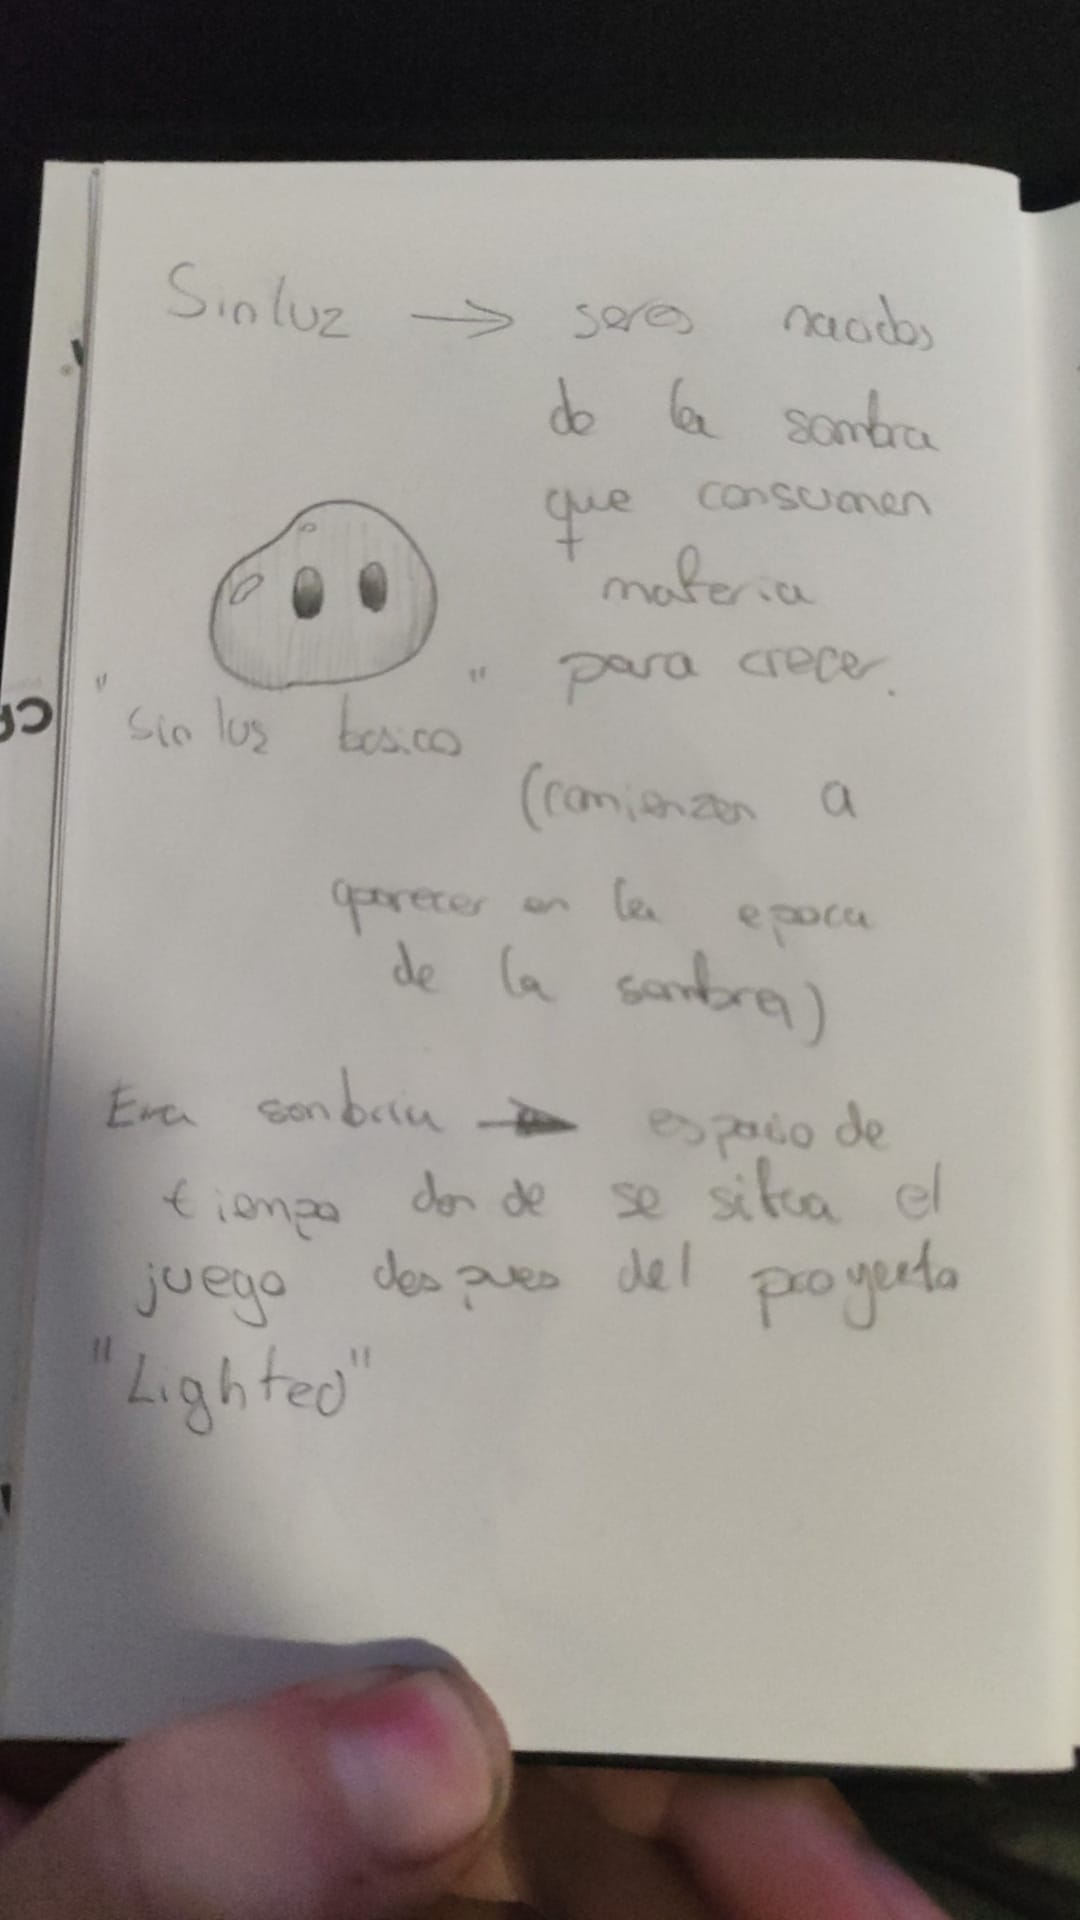 Sinluz → seres nacidos
de la sombra
que consumen
materia
para crecer.
"sin luz basico"
(comienzan a
aparecer en la epoca
de la sombra)
Era sonbria → espacio de
tiempo donde se situa el
juego despues del proyecto
"Lighted"